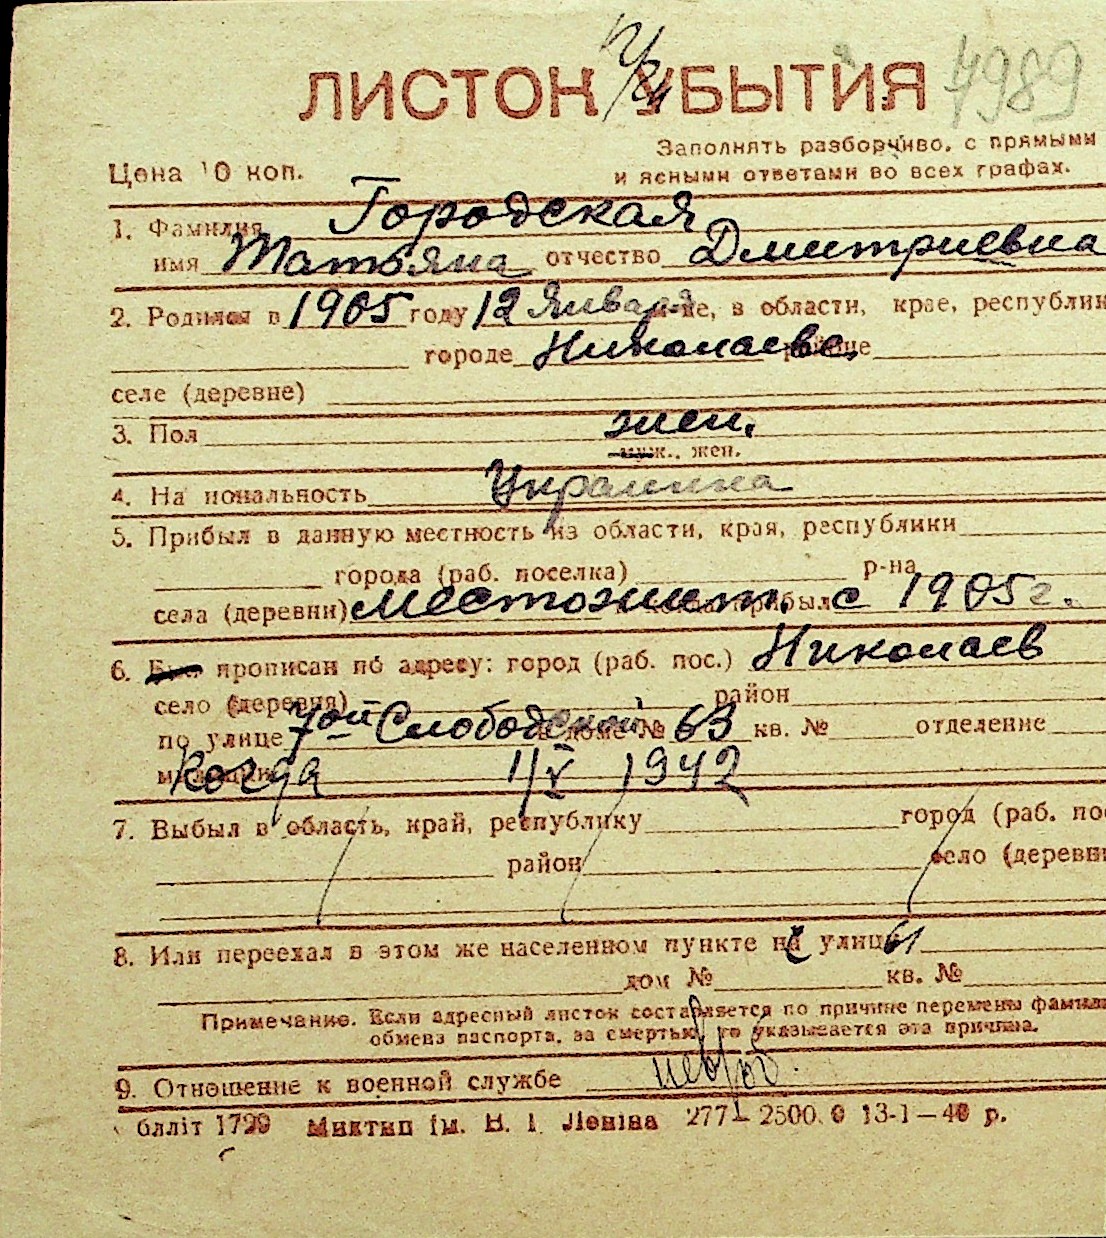 ЛИСТОК УБЫТИЯ 4989
Заполнять разборчиво, с прямыми
Цена 10 коп. и ясными ответами во всех графах.
1. Фамилия Городская
имя Татьяна отчество Дмитриевна
2. Родился в 1905 году 12 Января в области, крае, республик
городе Николаеве
селе (деревне)
3. Пол жен.
муж., жен.
4. Национальность Украинка
5. Прибыл в данную местность из области, края, республики
города (раб. поселка) р-на
села (деревни) Местожит. прибыл с 1905 г.
6. прописан по адресу: город (раб. пос.) Николаев
село (деревня) район
по улице 7ой Слободской доме № 63 кв. № отделение
когда 1/V 1942
7. Выбыл в область, край, республику город (раб. по
район село (деревн
8. Или переехал в этом же населенном пункте на улицу
дом № кв. №
Примечание. Если адресный листок составляется по причине перемены фамили
обмена паспорта, за смертью, то указывается эта причина.
9. Отношение к военной службе нев/об.
бліт 1799 Миктип ім. В. І. Леніна 277–2500.0 13-1–40 р.